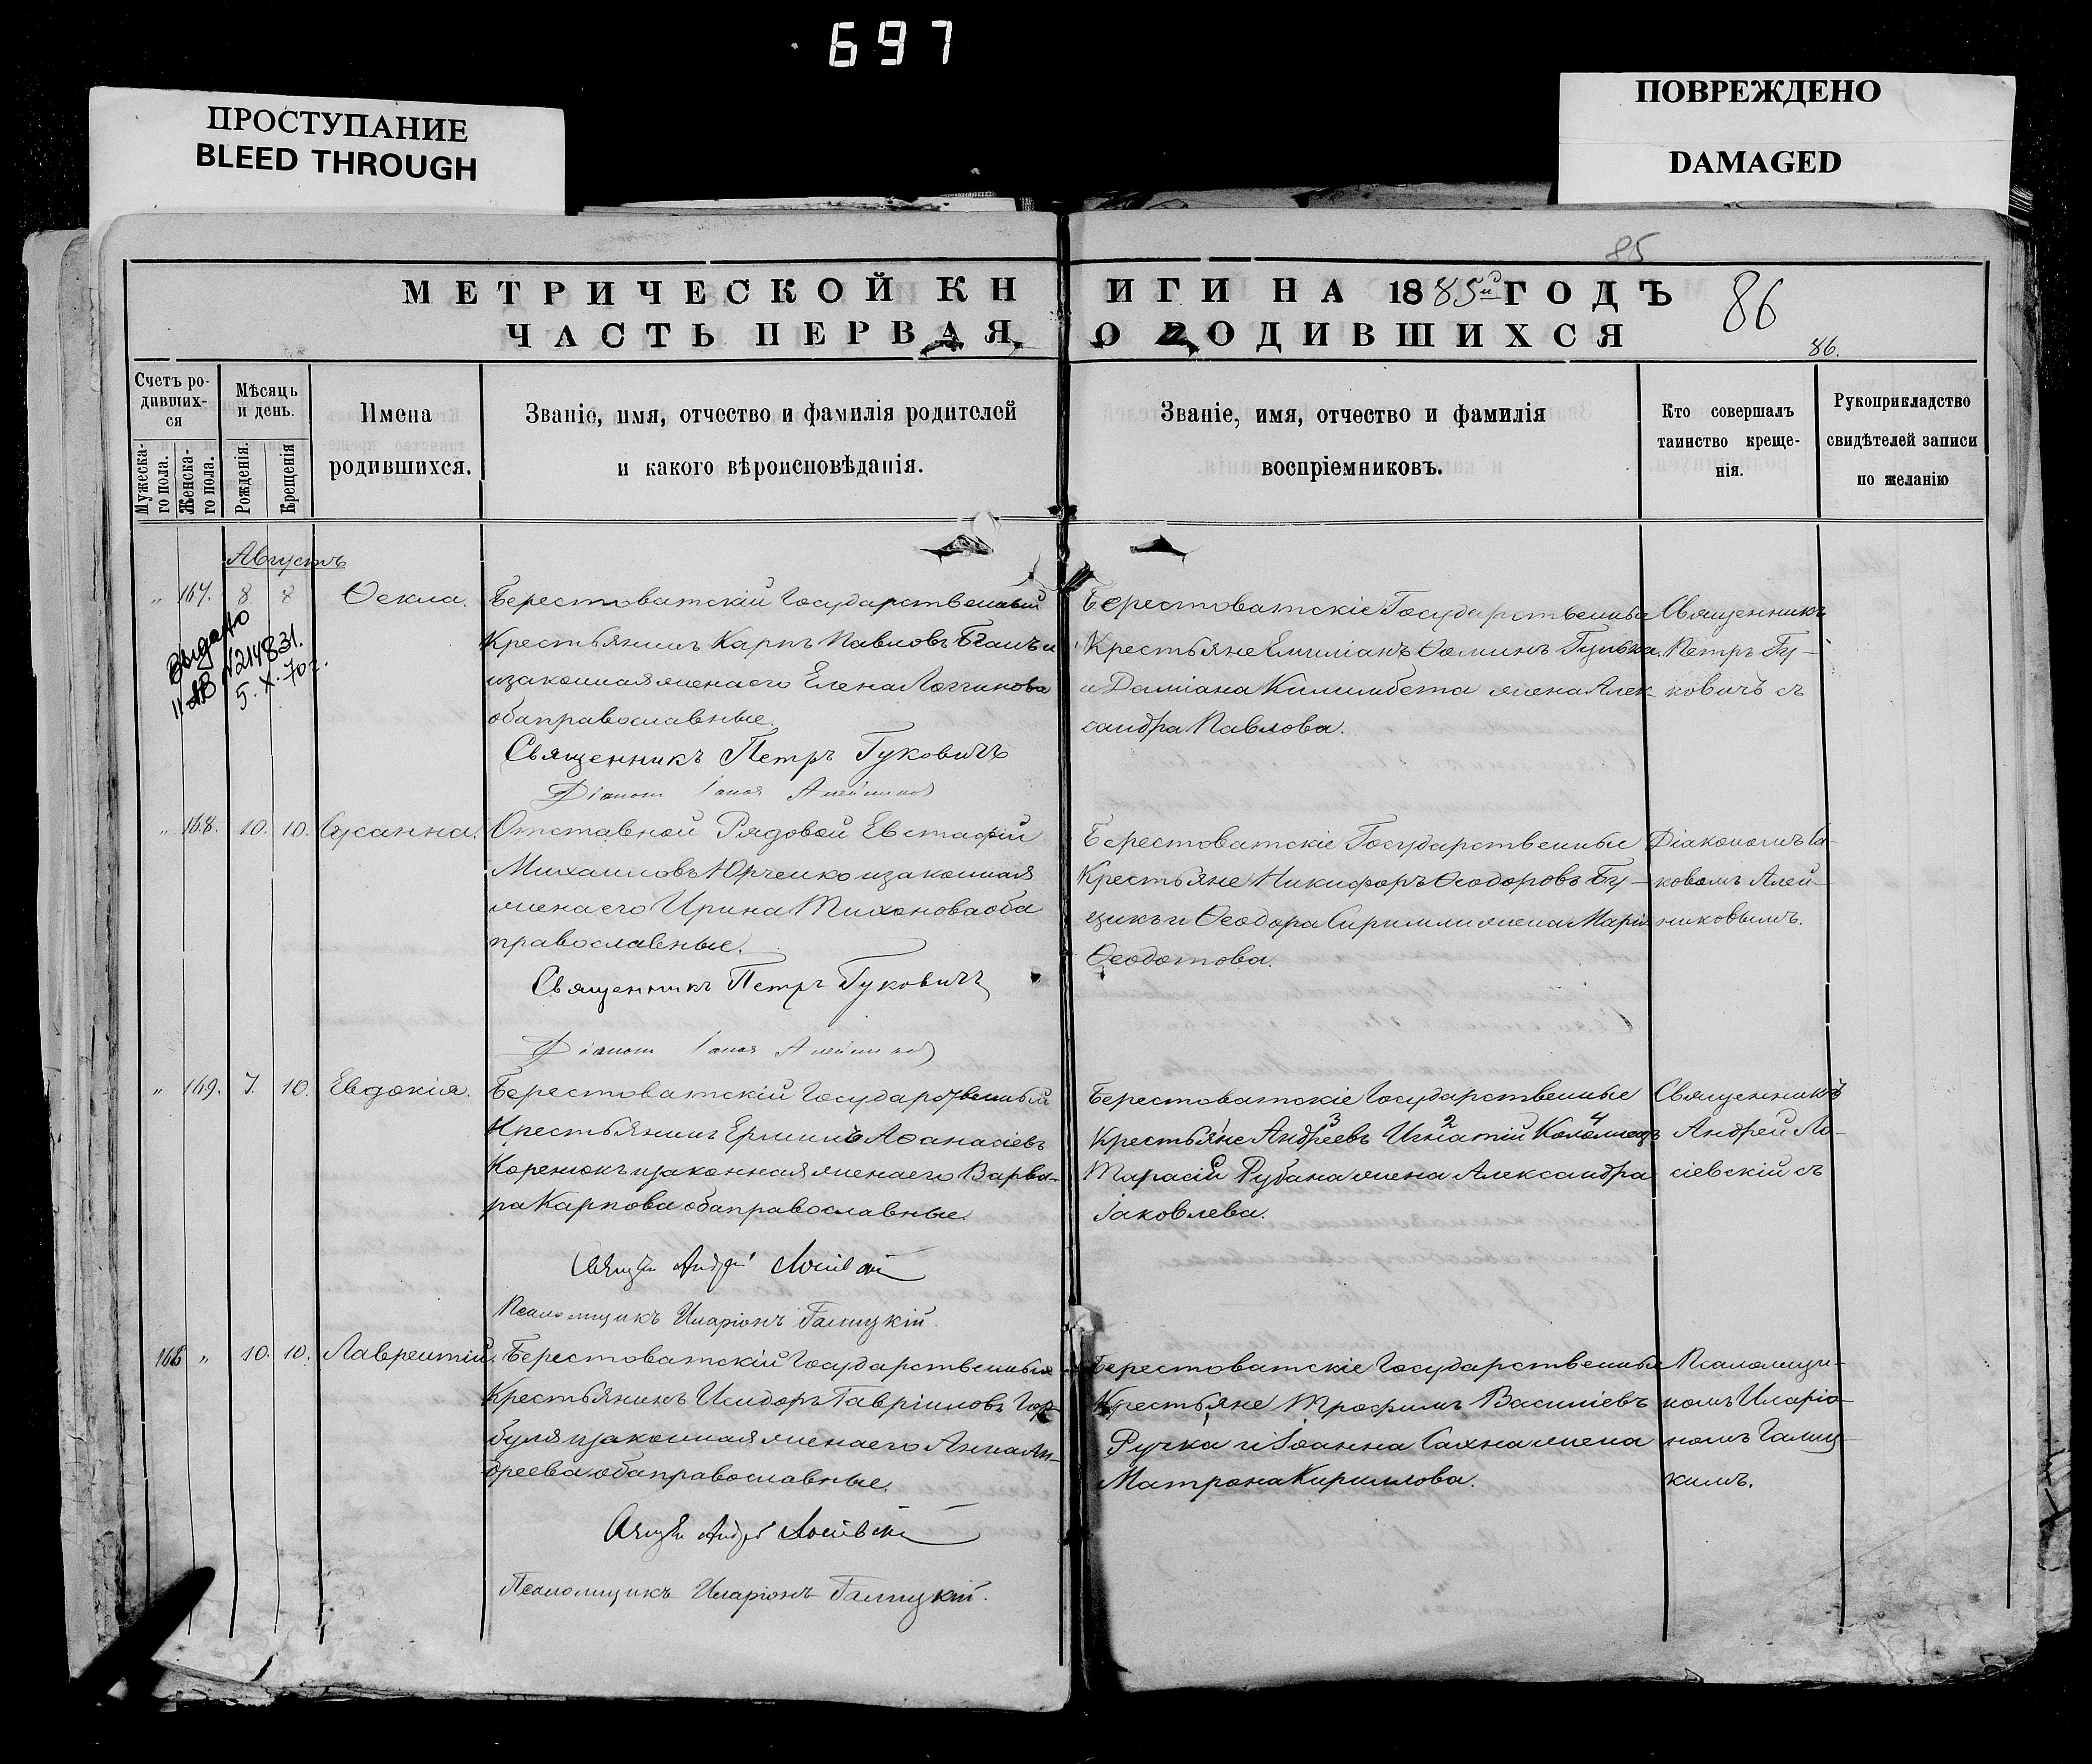 697
ПРОСТУПАНИЕ
BLEED THROUGH
ПОВРЕЖДЕНО
DAMAGED
85
МЕТРИЧЕСКОЙ КНИГИ НА 1885й ГОДЪ
86
ЧАСТЬ ПЕРВАЯ О РОДИВШИХСЯ
86.
Счетъ ро-
дивших-
ся
Мужеска-
го пола.
Женска-
го пола.
Мѣсяць
и день.
Рожденія.
Крещенія
Имена
родившихся.
Званіе, имя, отчество и фамилія родителей
и какого вѣроисповѣданія.
Званіе, имя, отчество и фамилія
воспріемниковъ.
Кто совершалъ
таинство креще-
нія.
Рукоприкладство
свидѣтелей записи
по желанію
Августъ
" 167. 8 8 Ѳекла.
Выдано
II АВ №214831.
5. X. 70г.
Берестоватскій Государственный
Крестьянинъ Карпъ Павловъ
и законная жена его Елена Логгинова
оба православные.
Священникъ Петръ Гуковичъ
Діаконъ Іаковъ Алейниковъ
Берестоватскіе Государственные
Крестьяне Емиліанъ Ѳоминъ
и Даміана Килимбета жена Алек-
сандра Павлова.
Священникъ
Петръ Гу-
ковичъ съ
" 168. 10. 10. Сусанна.
Отставной Рядовой Евстафій
Михаиловъ Юрченко и законная
жена его Ирина Тихонова оба
православные.
Священникъ Петръ Гуковичъ
Діаконъ Іаковъ Алейниковъ
Берестоватскіе Государственные
Крестьяне Никифоръ Ѳеодоровъ
и Ѳеодора жена Марія
Ѳеодотова.
Діакономъ Іа-
ковомъ Алей-
никовымъ.
" 169. 7. 10. Евдокія.
Берестоватскій Государственный
Крестьянинъ Ермилъ Аѳанасіевъ
Коренюкъ и законная жена его Варва-
ра Карпова оба православные.
Священ. Андрей Лосіевскій
Псаломщикъ Иларіонъ Галицкій.
Берестоватскіе Государственные
Крестьяне Андреевъ 3 Игнатій 2 Коломіецъ 4
Тарасій Рубана жена Александра
Іаковлева.
Священникъ
Андрей Ло-
сіевскій съ
166 " 10. 10. Лаврентій.
Берестоватскій Государственный
Крестьянинъ Исидоръ Гавріиловъ Гор-
буля и законная жена его Анна Ан-
дреева оба православные.
Священ. Андрей Лосіевскій
Псаломщикъ Иларіонъ Галицкій.
Берестоватскіе Государственные
Крестьяне Трофимъ Василіевъ
Ручка и Іоанна Сахна жена
Матрона Кириллова.
Псаломщи-
комъ Иларіо-
номъ Галиц-
кимъ.